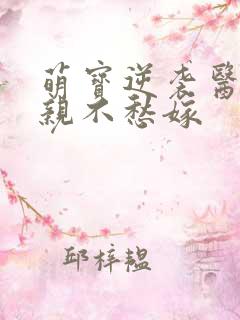 萌寶逆袭醫
親不愁嫁
邱梓韞